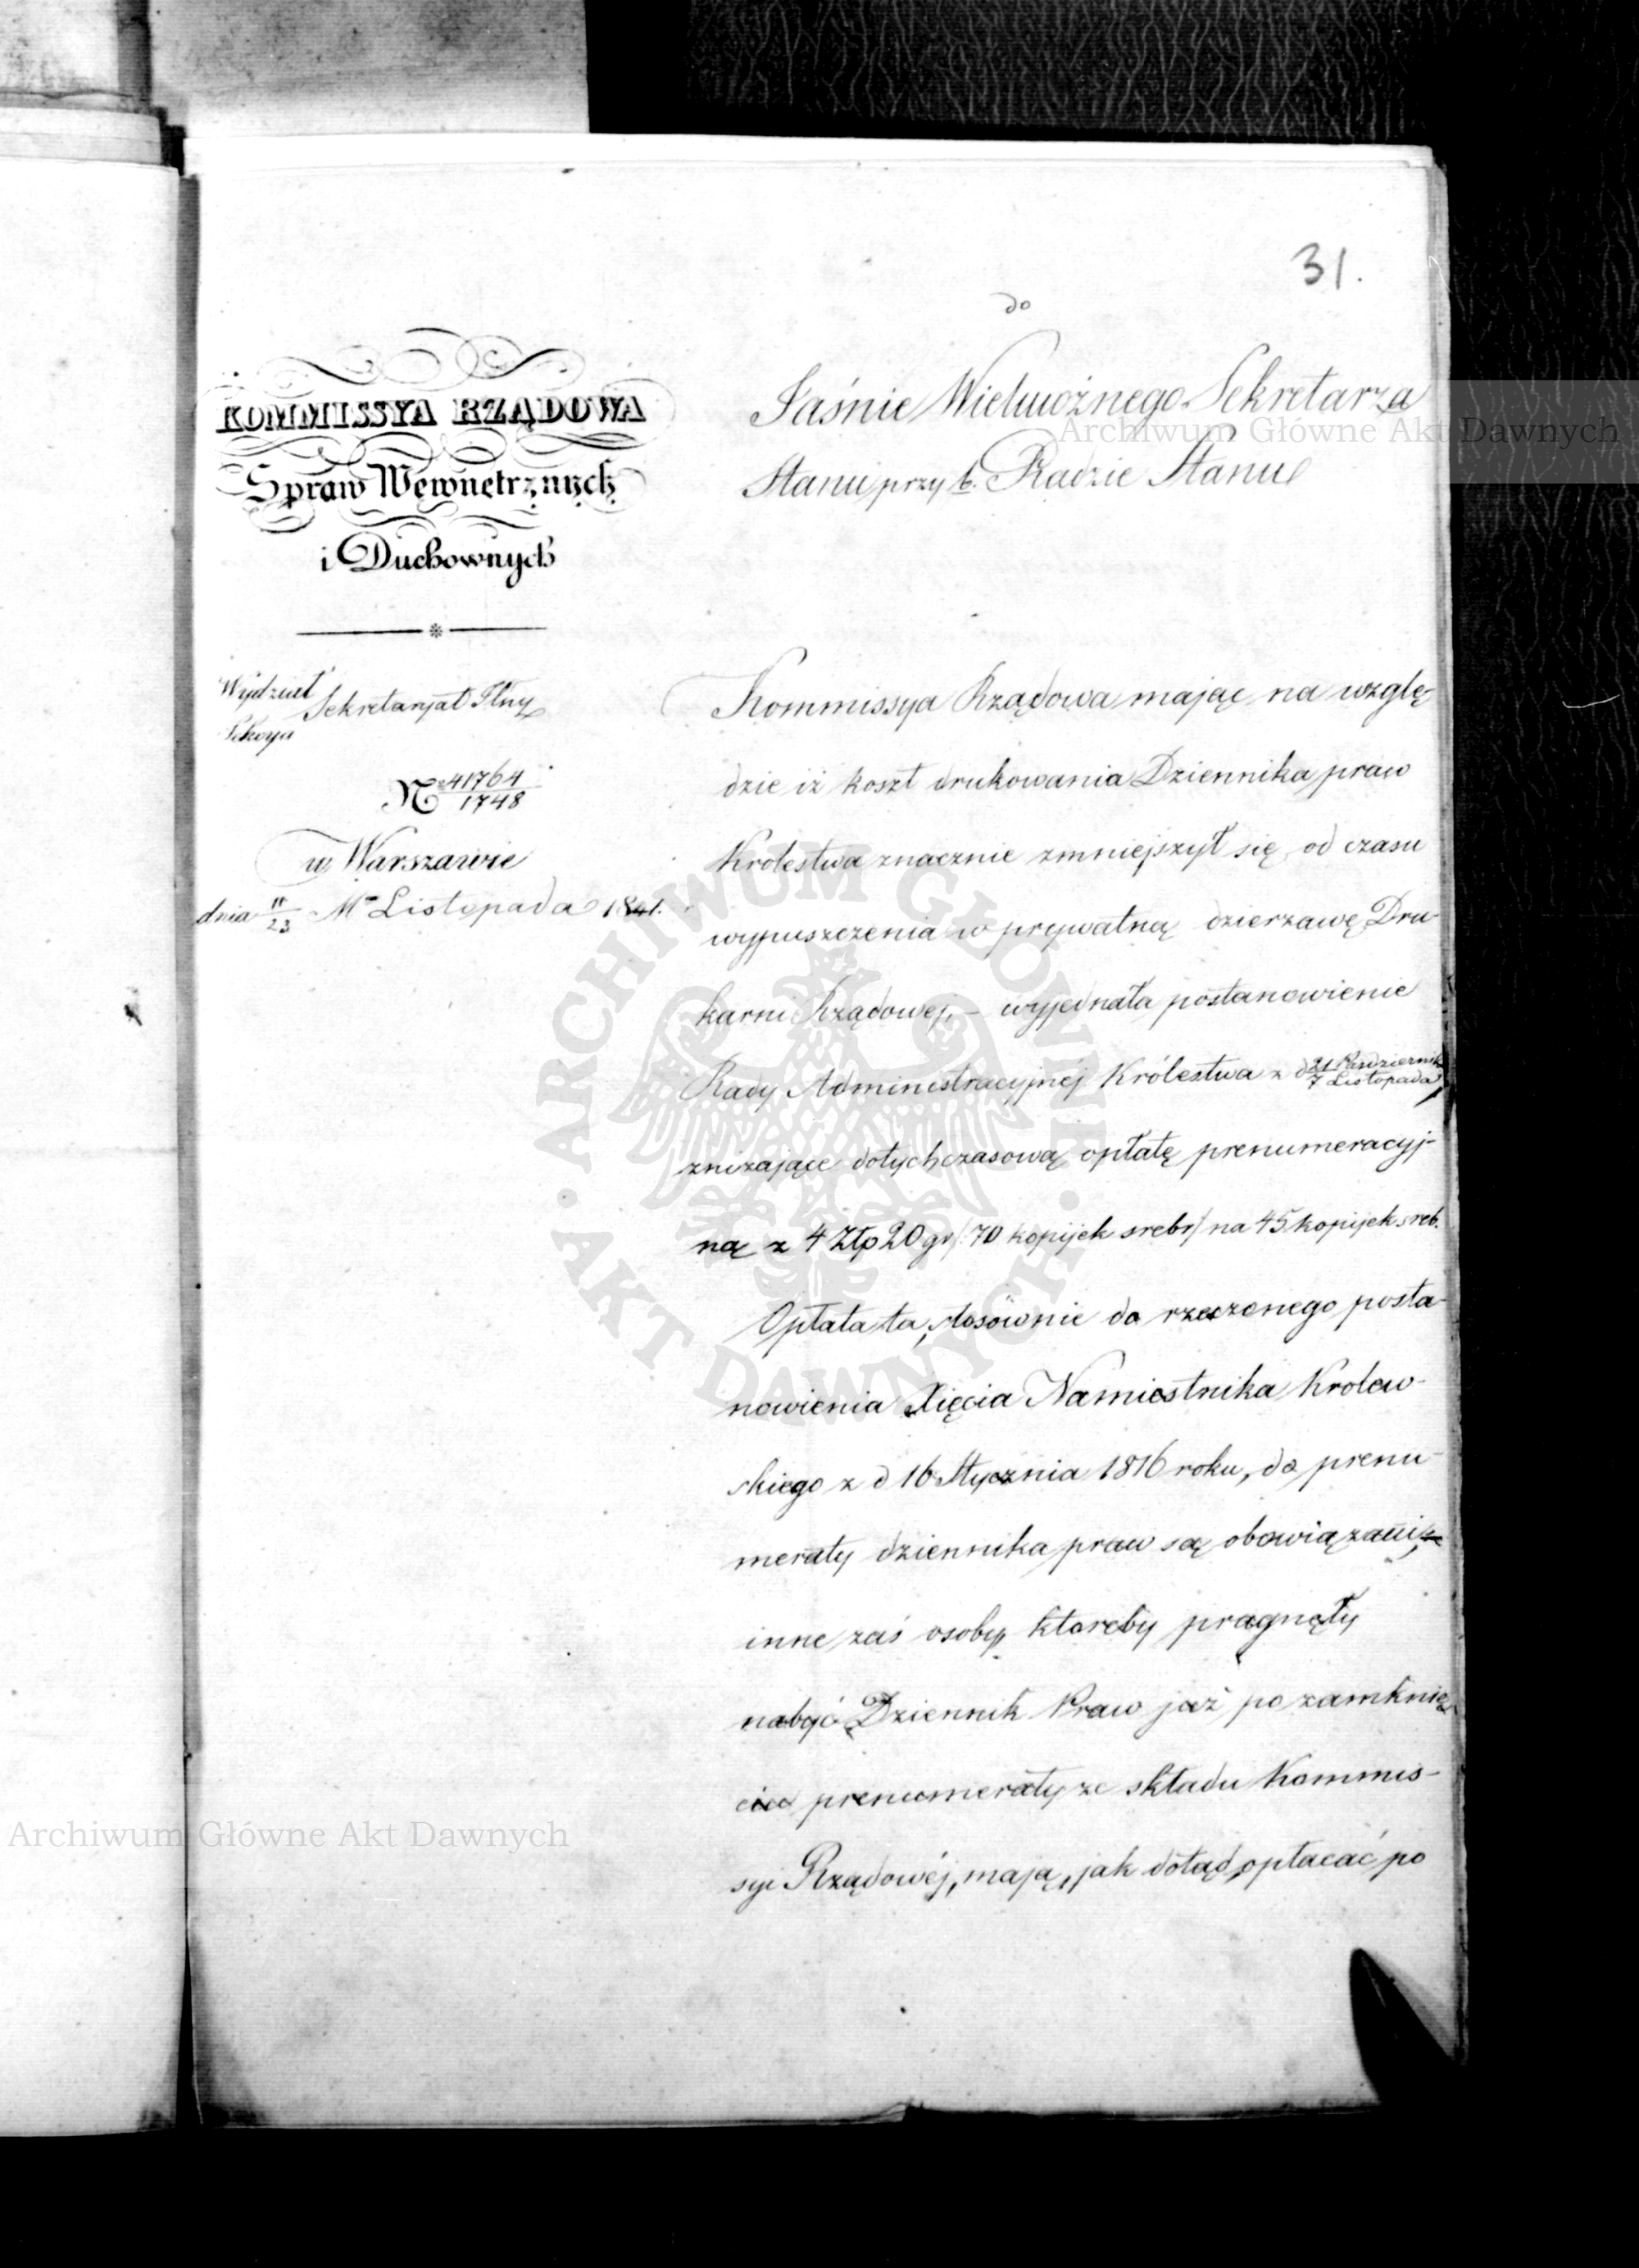 31.
do
KOMMISSYA RZĄDOWA
Spraw Wewnętrznych
i Duchownych
Wydział Sekretaryat Głny
Sekcya
N 41764/1748
w Warszawie
dnia 11/23 Mca Listopada 1841.
Jaśnie Wielmożnego Sekretarza
Stanu przy b. Radzie Stanu
Kommissya Rządowa mając na wzglę-
dzie iż koszt drukowania Dziennika praw
Krolestwa znacznie zmniejszył się od czasu
wypuszczenia w prywatną dzierzawę Dru-
karni Rządowej, – wyjednała postanowienie
Rady Administracyjnéj Królestwa z d 21 Października/7 Listopada
zniżające dotychczasową opłatę prenumeracyj-
ną z 4 Złp 20 gr /:70 kopijek srebr:/ na 45 kopijek sreb.
Opłata ta, stosównie do rzeczonego posta-
nowienia Xięcia Namiestnika Krolew-
skiego z d 16 Stycznia 1816 roku, do prenu-
meraty dziennika praw są obowiązani,
inne zaś osoby, ktoreby pragnęły
nabyć Dziennik Praw już po zamknię-
ciu prenumeraty ze składu Kommis-
syi Rządowéj, mają, jak dotąd, opłacać po
Archiwum Główne Akt Dawnych
ARCHIWUM GŁÓWNE
AKT DAWNYCH
Archiwum Główne Akt Dawnych